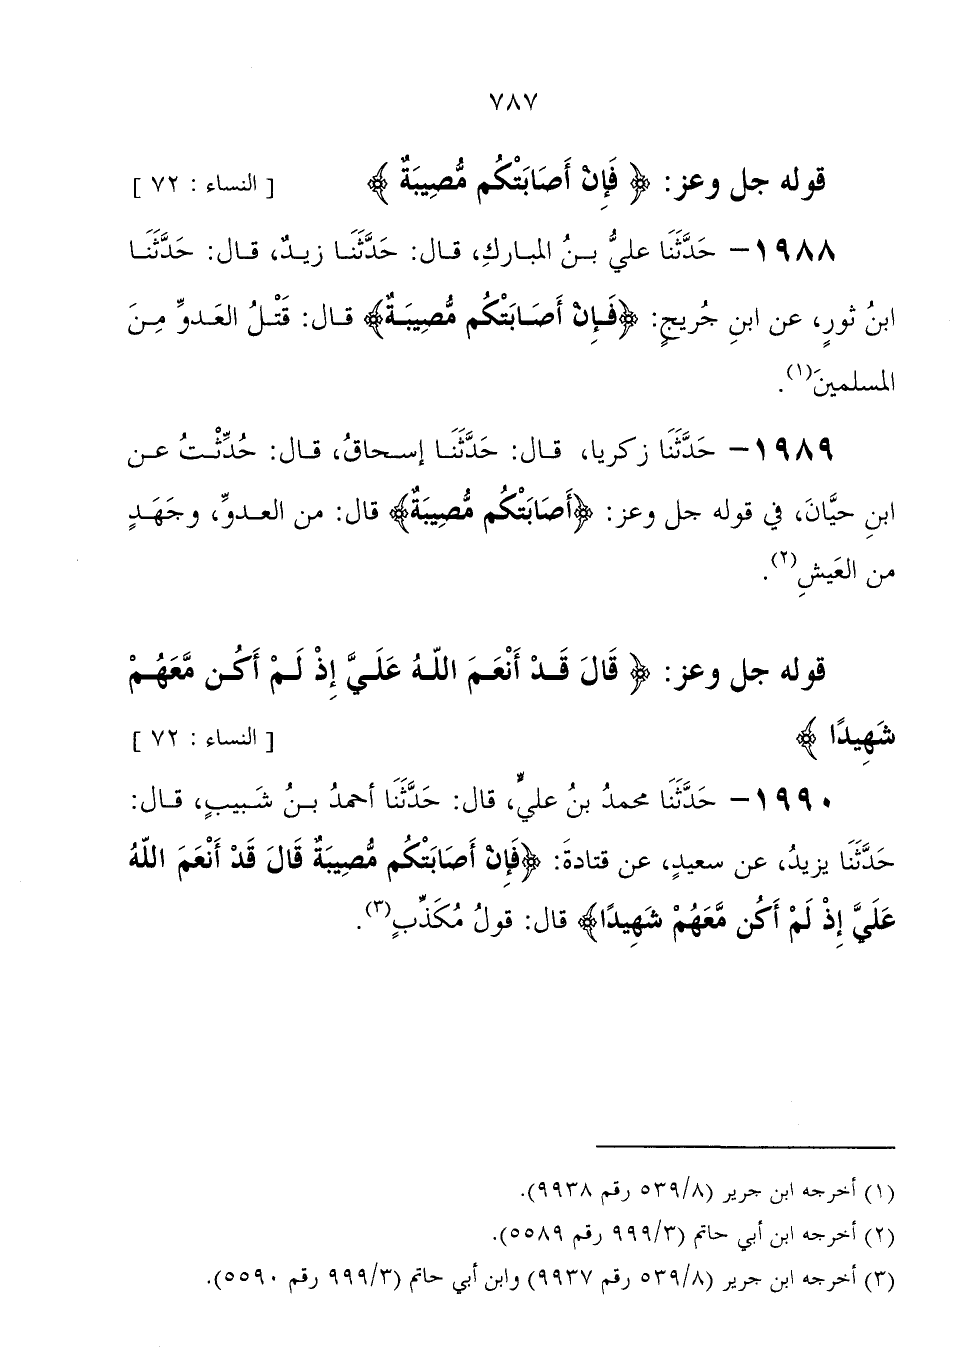 ٧٨٧
قوله جل وعز: ﴿ فَإِنْ أَصَابَتْكُم مُّصِيبَةٌ ﴾ [ النساء : ٧٢ ]
١٩٨٨– حَدَّثَنَا عليُّ بـنُ المباركِ، قـال: حَدَّثَنَـا زيـدٌ، قـال: حَدَّثَنَـا
ابنُ ثورٍ، عن ابنِ جُريجٍ: ﴿فَـإِنْ أَصَـابَتْكُم مُّصِيبَـةٌ﴾ قـال: قَتْـلُ العَـدوِّ مِـنَ
المسلمينَ(١).
١٩٨٩– حَدَّثَنَا زكريا، قـال: حَدَّثَنَـا إسـحاقُ، قـال: حُدِّثْـتُ عـن
ابنِ حيَّانَ، في قوله جل وعز: ﴿أَصَابَتْكُم مُّصِيبَةٌ﴾ قال: من العـدوِّ، وجَهَـدٍ
من العَيشِ(٢).
قوله جل وعز: ﴿ قَالَ قَـدْ أَنْعَـمَ اللّـهُ عَلَـيَّ إِذْ لَـمْ أَكُـن مَّعَهُـمْ
شَهِيدًا ﴾ [ النساء : ٧٢ ]
١٩٩٠– حَدَّثَنَا محمدُ بنُ عليٍّ، قال: حَدَّثَنَا أحمدُ بـنُ شَـبيبٍ، قـال:
حَدَّثَنَا يزيدُ، عن سعيدٍ، عن قتادةَ: ﴿فَإِنْ أَصَابَتْكُم مُّصِيبَةٌ قَالَ قَدْ أَنْعَمَ اللّهُ
عَلَيَّ إِذْ لَمْ أَكُن مَّعَهُمْ شَهِيدًا﴾ قال: قولُ مُكَذِّبٍ(٣).
(١) أخرجه ابن جرير (٥٣٩/٨ رقم ٩٩٣٨).
(٢) أخرجه ابن أبي حاتم (٩٩٩/٣ رقم ٥٥٨٩).
(٣) أخرجه ابن جرير (٥٣٩/٨ رقم ٩٩٣٧) وابن أبي حاتم (٩٩٩/٣ رقم ٥٥٩٠).